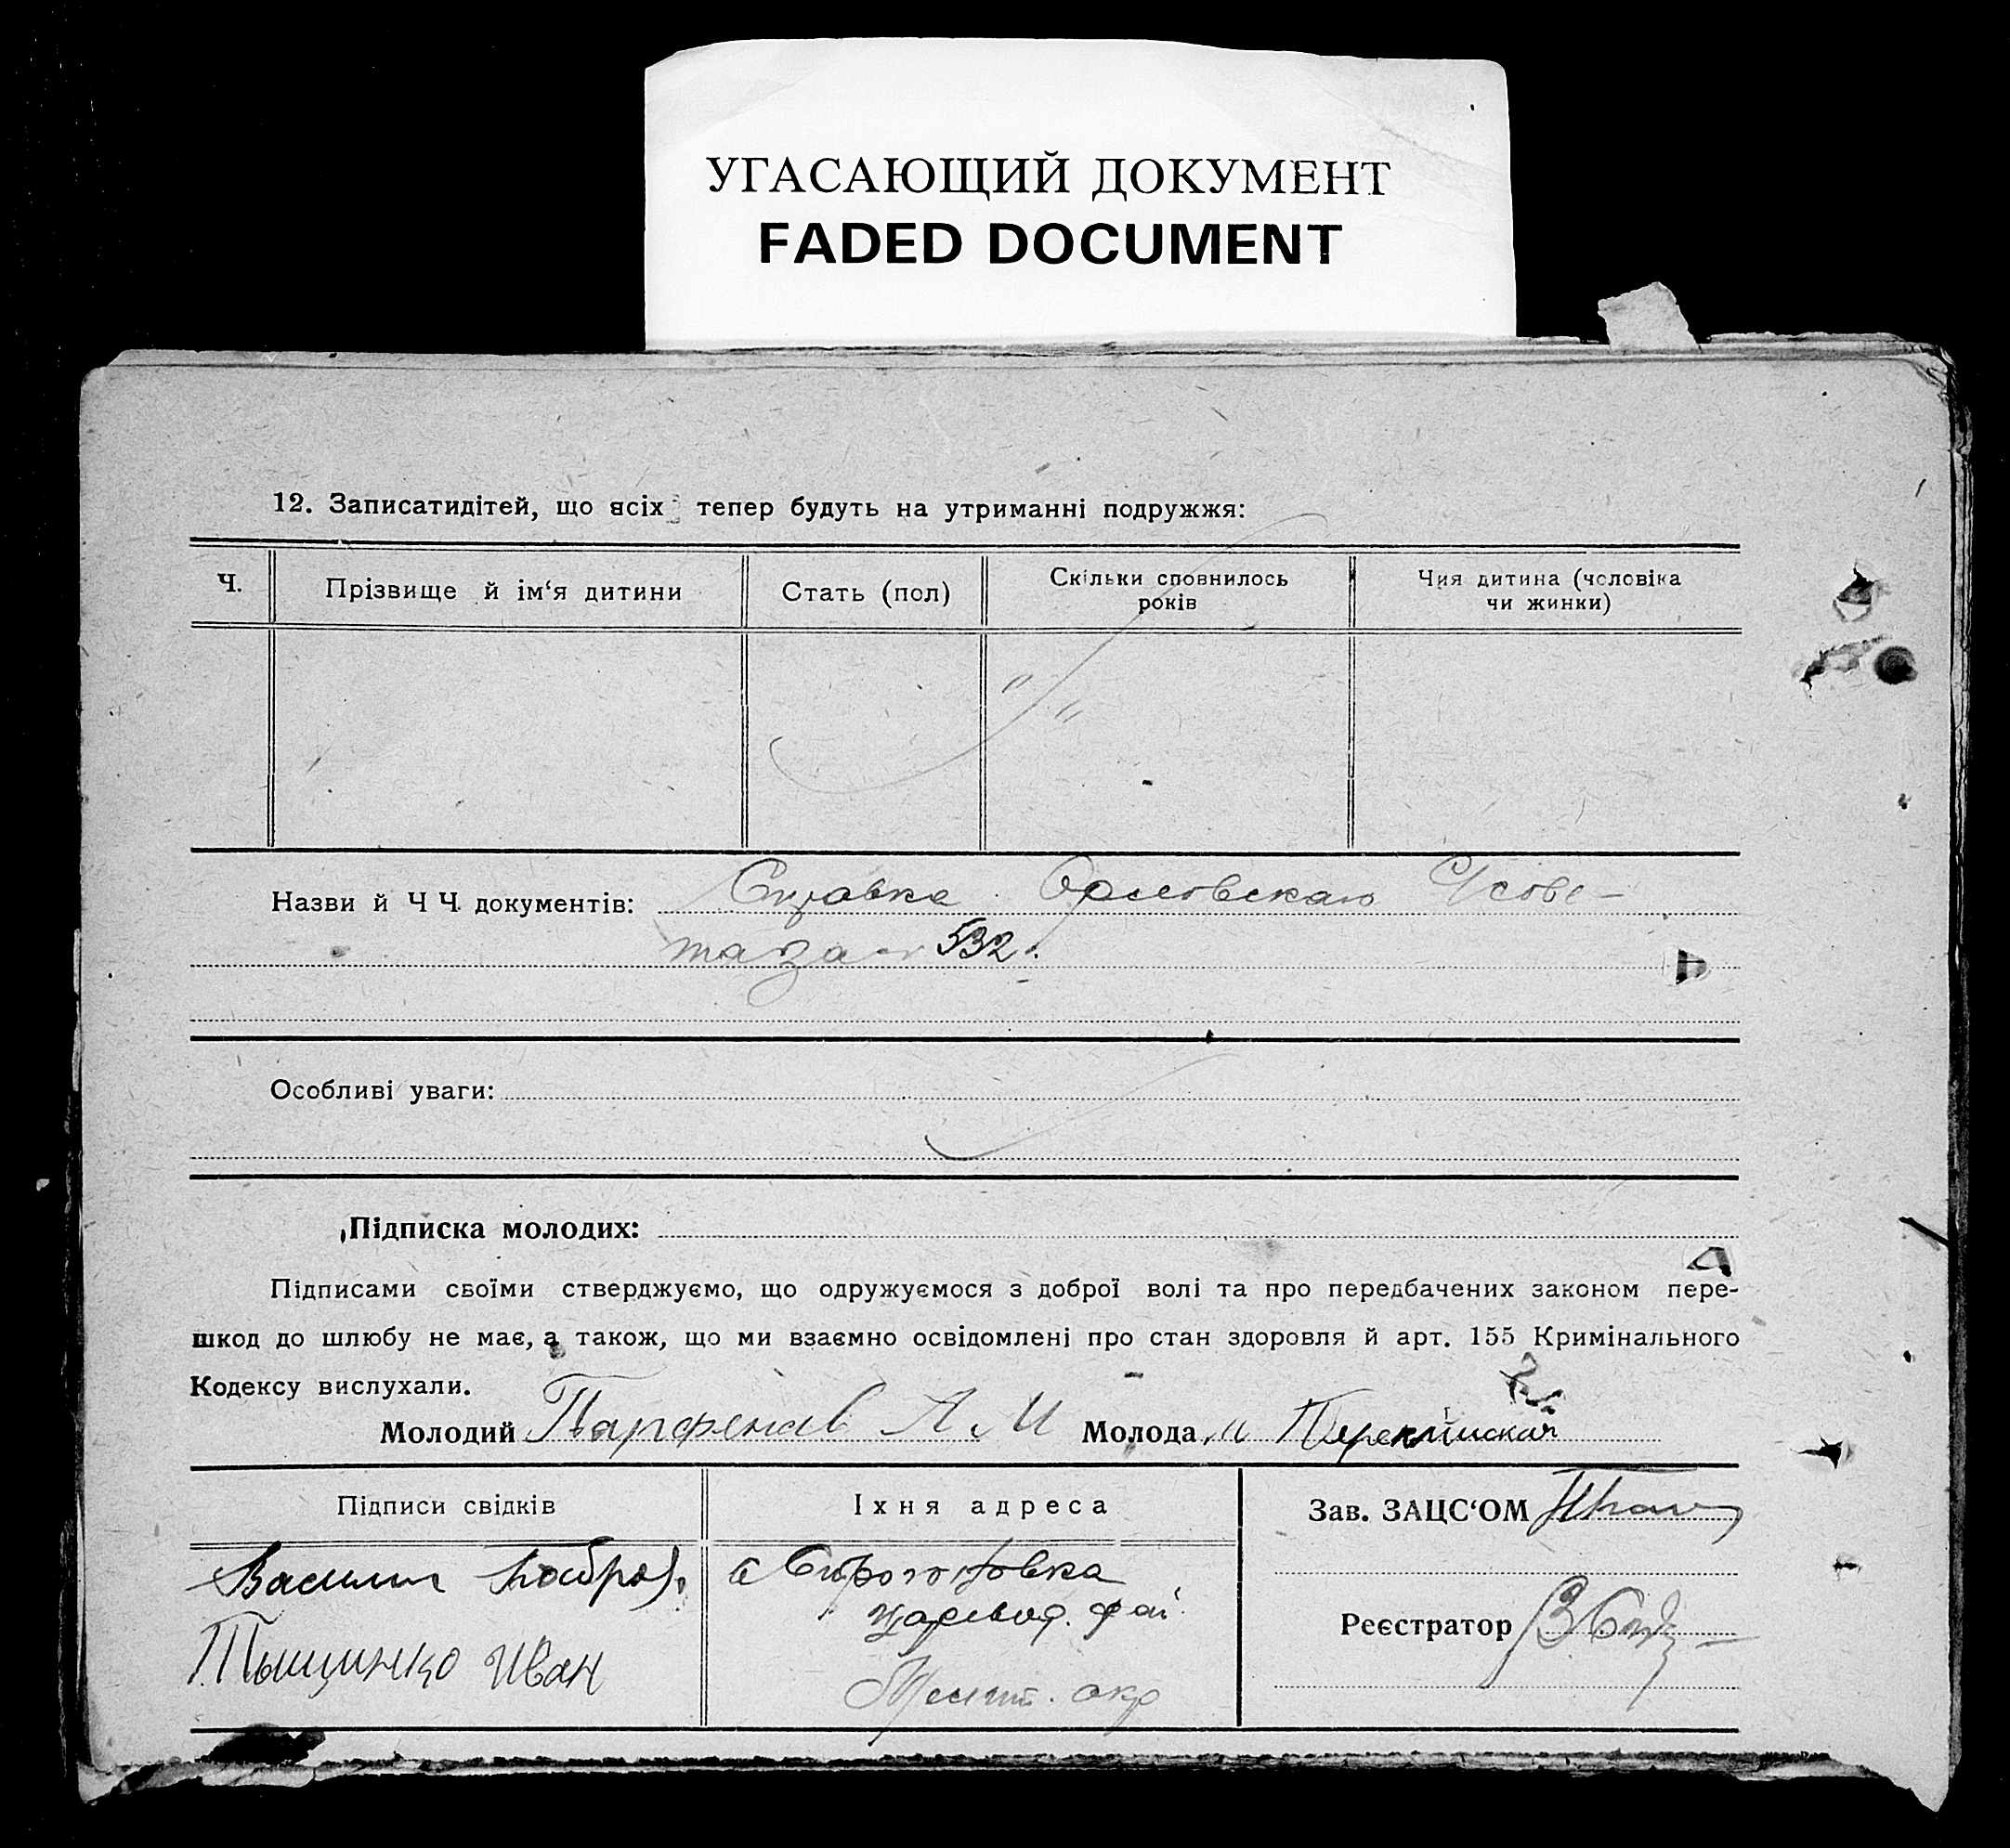 УГАСАЮЩИЙ ДОКУМЕНТ
FADED DOCUMENT
12. Записатидітей, що всіх тепер будуть на утриманні подружжя:
Ч.
Прізвище й ім‘я дитини
Стать (пол)
Скільки сповнилось
років
Чия дитина (чоловіка
чи жинки)
Назви й Ч Ч. документів: Справка
532
Особливі уваги:
Підписка молодих:
Підписами своїми стверджуємо, що одружуємося з доброї волі та про передбачених законом пере-
шкод до шлюбу не має, а також, що ми взаємно освідомлені про стан здоровля й арт. 155 Кримінального
Кодексу вислухали.
Молодий Парфенов А М Молода
Підписи свідків
Їхня адреса
Зав. ЗАЦС‘ОМ
Василий
с
Реєстратор
Тыщинко Иван
окр